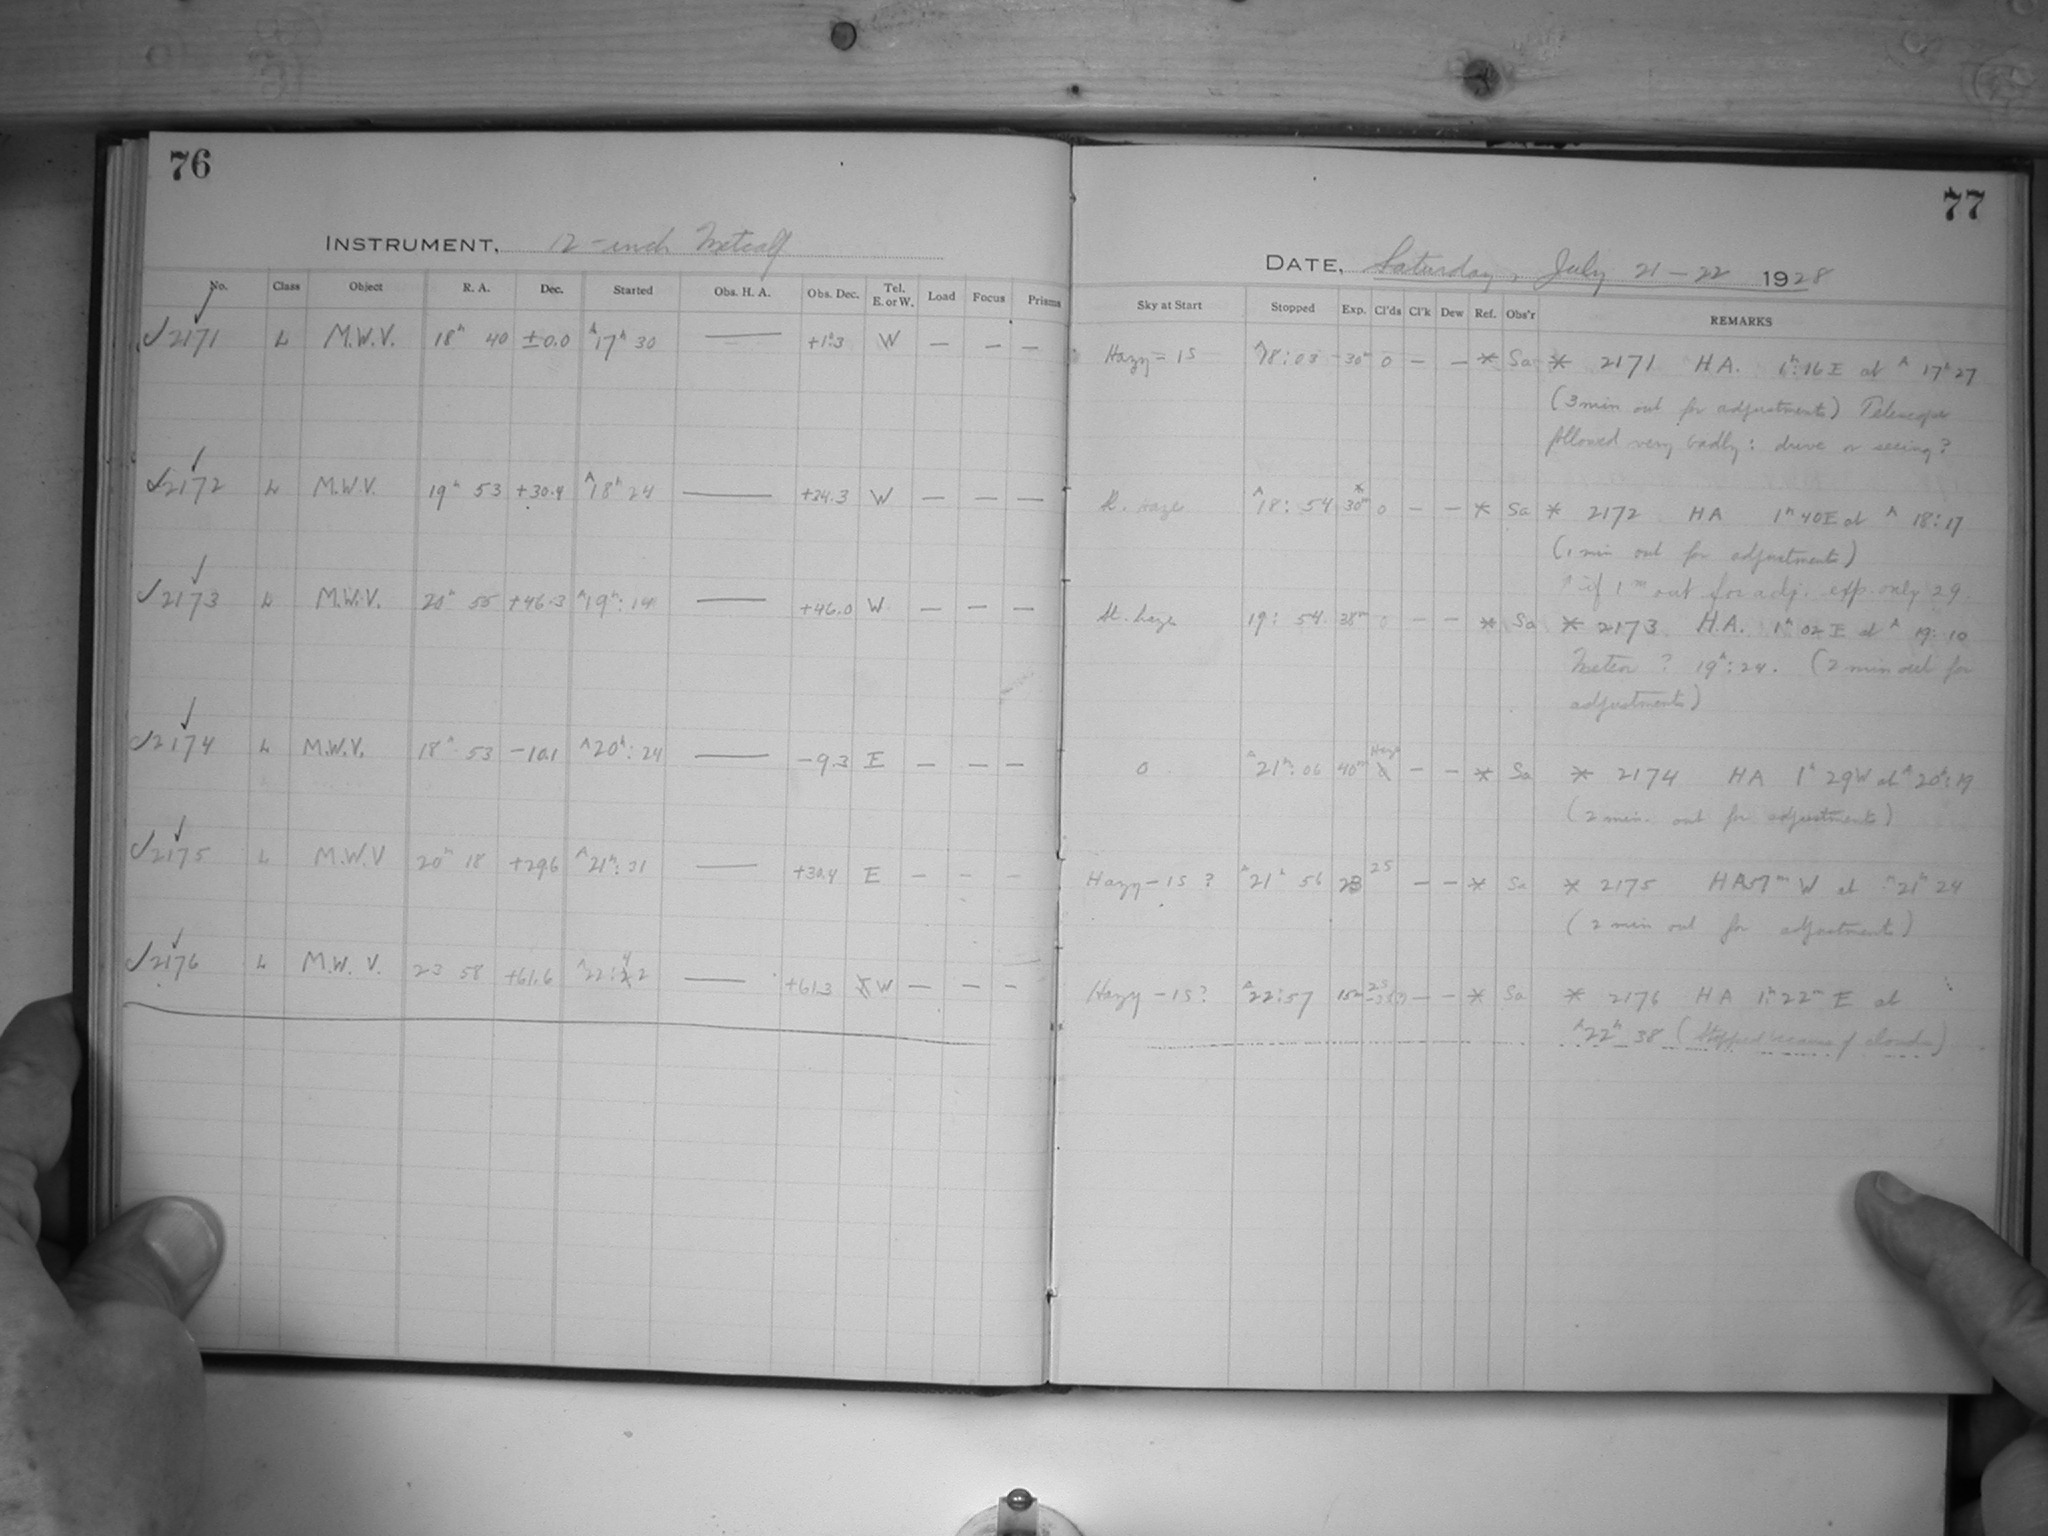 76
INSTRUMENT, 12-inch Metcalf
No. Class Object R. A. Dec. Started Obs. H. A. Obs. Dec. Tel. E. or W. Load Focus Prisms
2171 L M.W.V. 18h 40 ±0.0 A17h 30 — +1°.3 W — — —
2172 L M.W.V. 19h 53 +30.4 A18h 24 — W — — —
2173 L M.W.V. 20h 55 +46.3 A19h:14 — +46.0 W — — —
2174 L M.W.V. 18h 53 -10.1 A20h:24 — -9.3 E — — —
2175 L M.W.V 20h 18 +29.6 A21h:31 — +30.4 E — — —
2176 L M.W. V. 23 58 +61.6 A22:42 — +61.3 W — — —
77
DATE, Saturday, July 21-22 1928
Sky at Start Stopped Exp. Cl'ds Cl'k Dew Ref. Obs'r REMARKS
Hazy-1S A18:03 30m 0 — — * Sa * 2171 HA. 1h:16E at A 17h27
(3 min out for adjustments) Telescope
followed very badly: drive or seeing?
Sl. Haze A18:54 30m* 0 — — * Sa * 2172 HA 1h 40E at A 18:17
(1 min out for adjustments)
↑ if 1m out for adj. exp. only 29.
Sl. haze 19:54 38m 0 — — * Sa * 2173 H.A. 1h 02 E at A 19:10
Meteor? 19h:24. (2 min out for
adjustments)
0 A21h:06 40m Haze — — * Sa * 2174 HA 1h 29W at A20h:19
(2 min. out for adjustments)
Hazy-1S? A21h 56 23 2S — — * Sa * 2175 HA 57m W at A21h 24
(2 min out for adjustments)
Hazy-1S? A22:57 15m 2S — — * Sa * 2176 HA 1h 22m E at
A22h 38 (Stopped because of clouds)